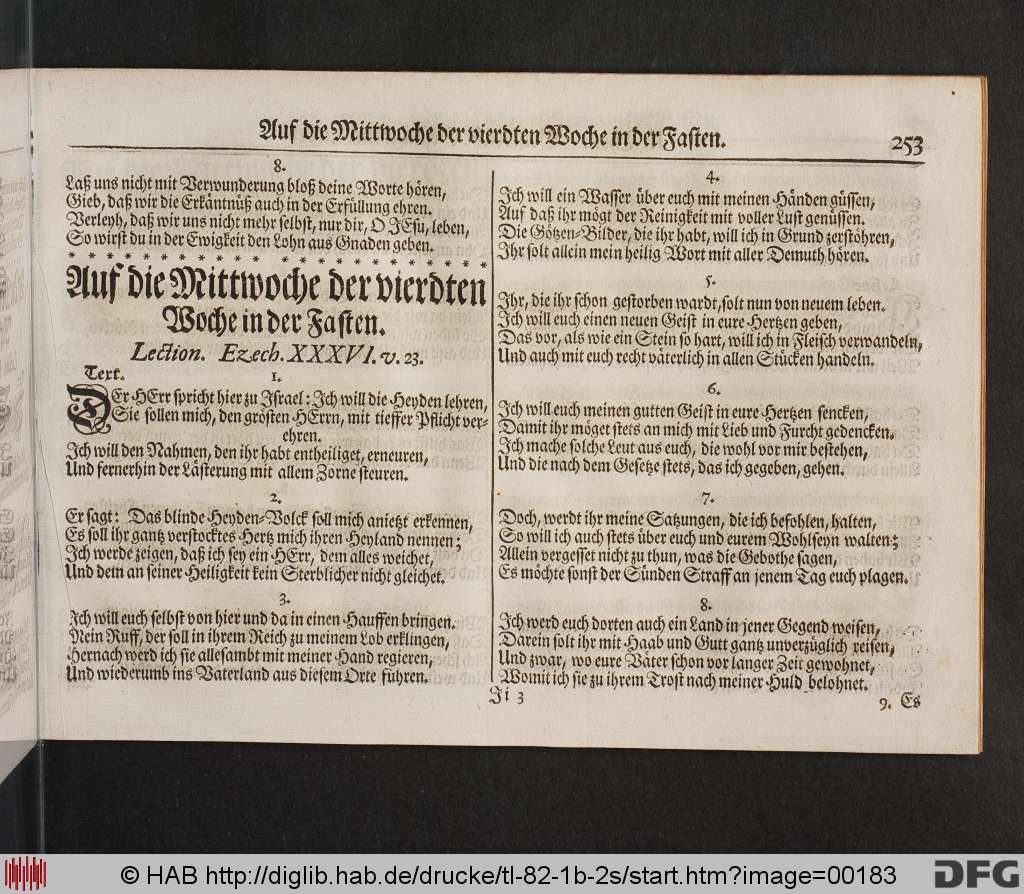 Auf die Mittwoche der vierdten Woche in der Fasten.
253
8.
Laß uns nicht mit Verwunderung bloß deine Worte hören,
Gieb, daß wir die Erkäntnüß auch in der Erfüllung ehren.
Verleyh, daß wir uns nicht mehr selbst, nur dir, O JEsu, leben,
So wirst du in der Ewigkeit den Lohn aus Gnaden geben.
* * * * * * * * * * * * * * * * * * * *
Auf die Mittwoche der vierdten
Woche in der Fasten.
Lection. Ezech. XXXVI. v. 23.
Text.
1.
DEr HErr spricht hier zu Israel: Ich will die Heyden lehren,
Sie sollen mich, den grösten HErrn, mit tieffer Pflicht ver-
ehren.
Ich will den Nahmen, den ihr habt entheiliget, erneuren,
Und fernerhin der Lästerung mit allem Zorne steuren.
2.
Er sagt: Das blinde Heyden-Volck soll mich anietzt erkennen,
Es soll ihr gantz verstocktes Hertz mich ihren Heyland nennen;
Ich werde zeigen, daß ich sey ein HErr, dem alles weichet,
Und dem an seiner Heiligkeit kein Sterblicher nicht gleichet.
3.
Ich will euch selbst von hier und da in einen Hauffen bringen.
Mein Ruff, der soll in ihrem Reich zu meinem Lob erklingen,
Hernach werd ich sie allesambt mit meiner Hand regieren,
Und wiederumb ins Vaterland aus diesem Orte führen.
4.
Ich will ein Wasser über euch mit meinen Händen güssen,
Auf daß ihr mögt der Reinigkeit mit voller Lust genüssen.
Die Götzen-Bilder, die ihr habt, will ich in Grund zerstöhren,
Ihr solt allein mein heilig Wort mit aller Demuth hören.
5.
Ihr, die ihr schon gestorben wardt, solt nun von neuem leben.
Ich will euch einen neuen Geist in eure Hertzen geben,
Das vor, als wie ein Stein so hart, will ich in Fleisch verwandeln,
Und auch mit euch recht väterlich in allen Stücken handeln.
6.
Ich will euch meinen gutten Geist in eure Hertzen sencken,
Damit ihr möget stets an mich mit Lieb und Furcht gedencken.
Ich mache solche Leut aus euch, die wohl vor mir bestehen,
Und die nach dem Gesetze stets, das ich gegeben, gehen.
7.
Doch, werdt ihr meine Satzungen, die ich befohlen, halten,
So will ich auch stets über euch und eurem Wohlseyn walten;
Allein vergesset nicht zu thun, was die Gebothe sagen,
Es möchte sonst der Sünden Straff an jenem Tag euch plagen.
8.
Ich werd euch dorten auch ein Land in jener Gegend weisen,
Darein solt ihr mit Haab und Gutt gantz unverzüglich reisen,
Und zwar, wo eure Väter schon vor langer Zeit gewohnet,
Womit ich sie zu ihrem Trost nach meiner Huld belohnet.
Ii 3
9. Es
© HAB http://diglib.hab.de/drucke/tl-82-1b-2s/start.htm?image=00183
DFG